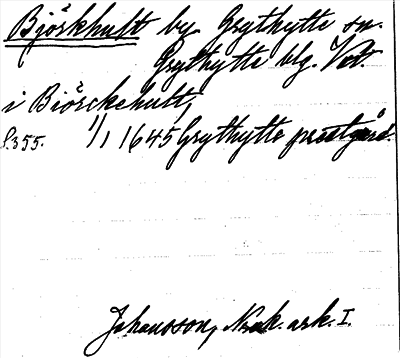 Björkhult by Grythytte sn.
Grythytte blg. Vstm.
i Biörckehult,
S.355. 1/1 1645 Grythytte prästgård.
Johansson, Norak. ark. I.